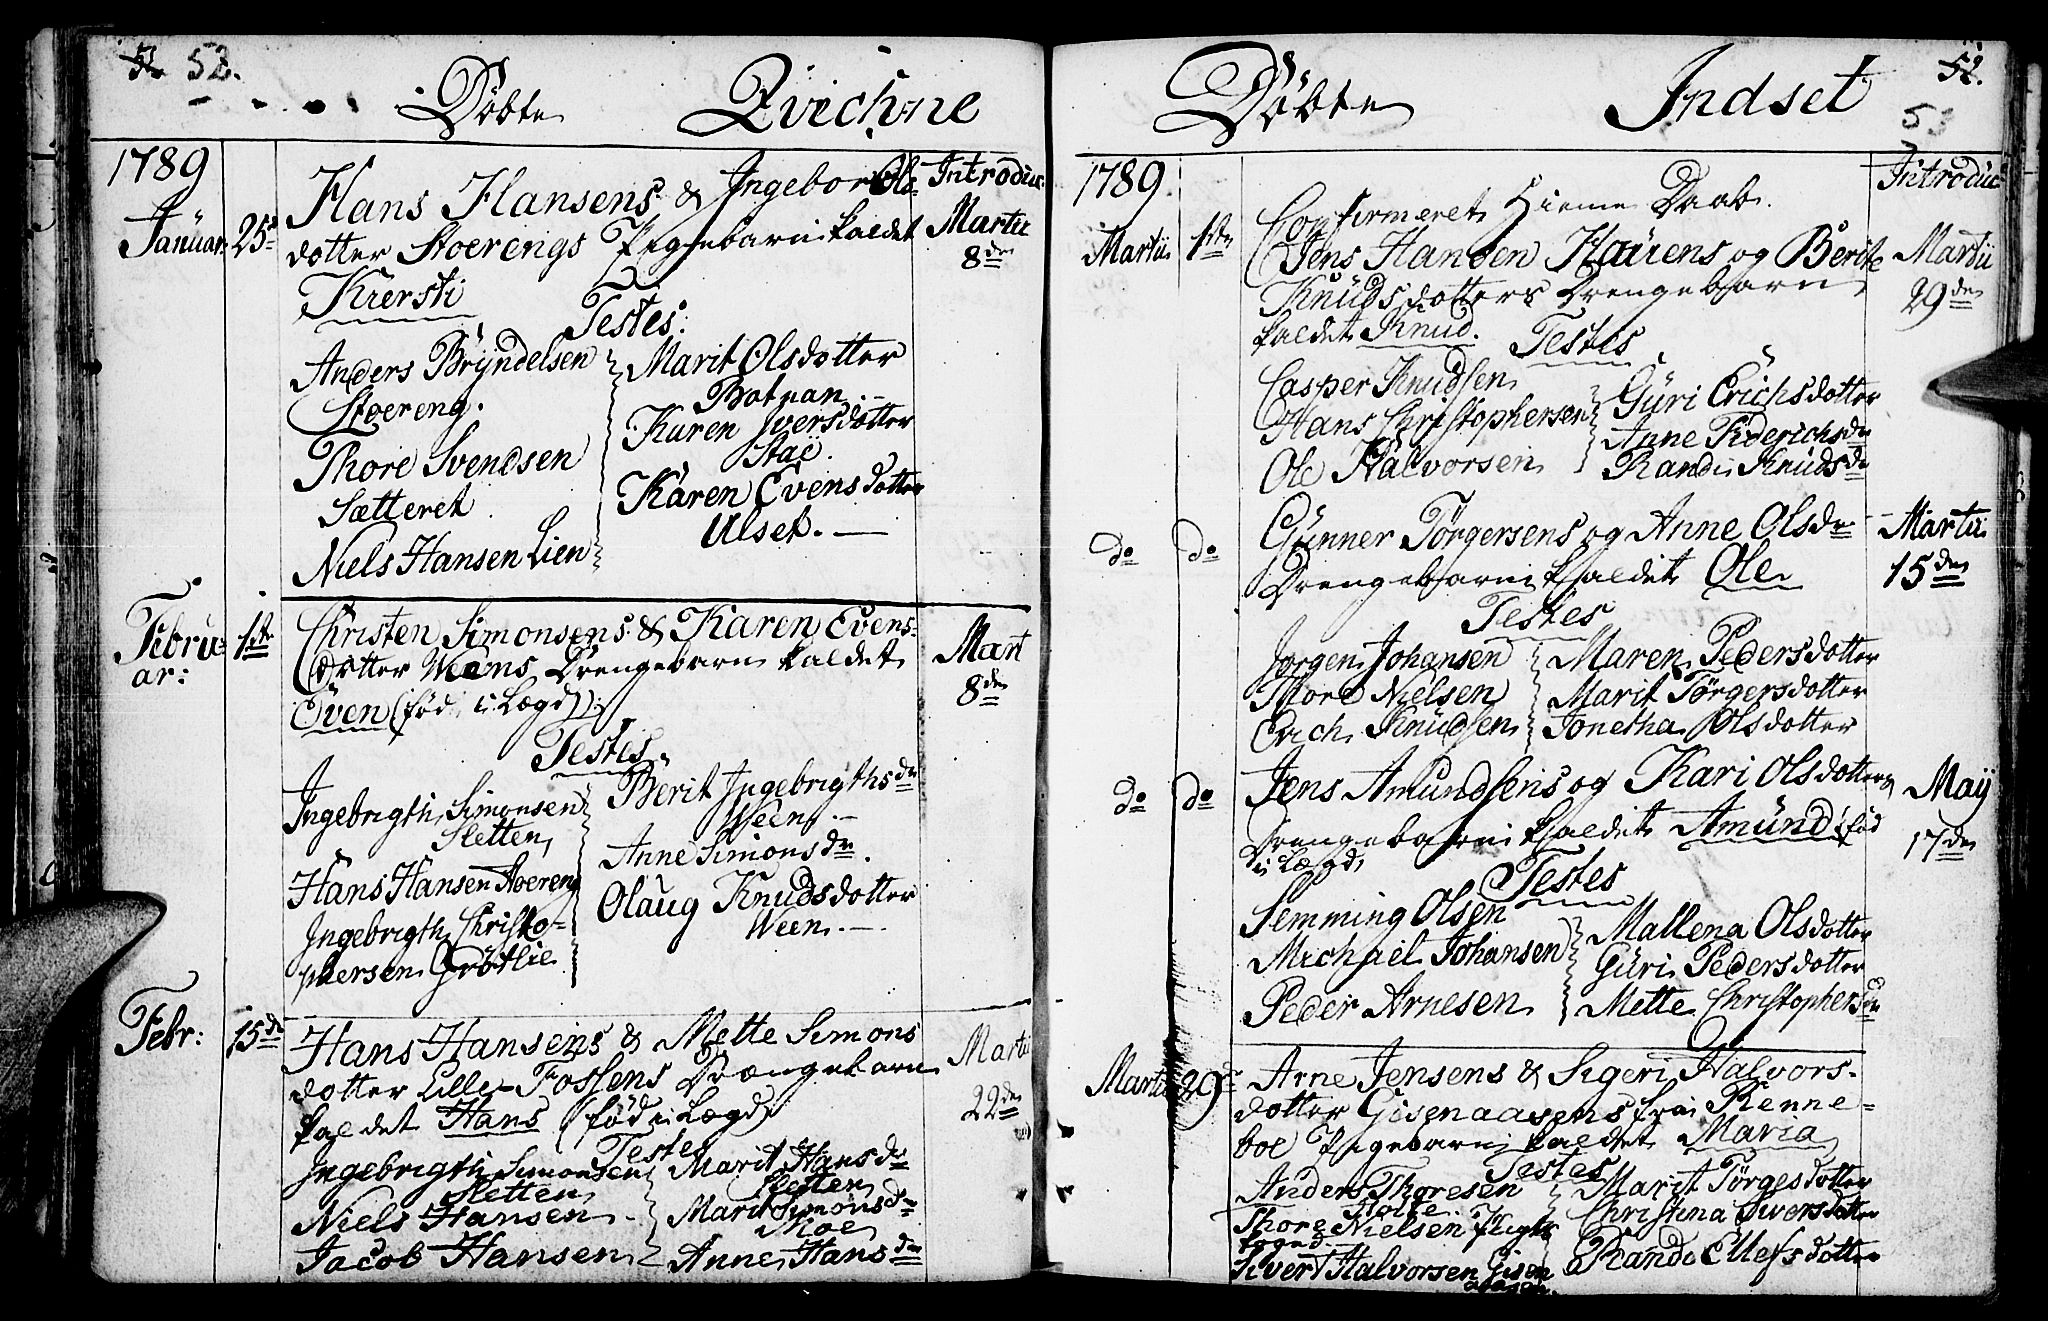 52.
Döbte Qvichne
1789
Januar 25de
Hans Hansens & Ingebor Ols
dotter Stoerengs Pigebarn kaldet
Kiersti
Introduc:
Martii
8de
Testes:
Anders Bryndelsen
Stoereng.
Thore Svendsen
Sætteret
Niels Hansen Lien
Marit Olsdotter
Karen Iversdotter
Staë.
Karen Evensdotter
Ulset.
Februar: 1ste
Christen Simonsens & Karen Evens-
dotter Weens Drengebarn kaldet
Even (fød i Lægd).
Mart
8de
Testes
Ingebrigth Simonsen
Sletten
Hans Hansen Stoereng
Ingebrigth Christo-
phersen Grötlie
Berit Ingebrigthsdr
Ween.
Anne Simonsdr.
Olaug Knudsdotter
Ween.
Febr: 15de
Hans Hansens & Mette Simons
dotter Lille-Fossens Drængebarn
kaldet Hans (fød i Lægd)
Martii
22de
Testes
Ingebrigth Simonsen
Sletten
Niels Hansen
Jacob Hansen
Marit Hansdr
Sletten
Marit Simonsdr
Moe
Anne Hansdr
52.
53
Döbte Indset
1789.
Martii 1ste
Confirmeret Hieme Daab.
Jens Hansen Haüens og Berite
Knüdsdotters Drengebarn
kaldet Knud.
Introduc
Martii
29de
Testes
Casper Knudsen
Hans Christophersen
Ole Halvorsen
Güri Erichsdotter
Anne Fiderichsdr
Randi Knüdsdr
do do
Günner Törgersens og Anne Olsdr
Drengebarn kaldet Ole
Martii
15de
Testes
Jørgen Johansen
Thore Nielsen
Erich Knüdsen
Maren Pedersdotter
Marit Törgersdotter
Jonetha Olsdotter
do do
Jens Amundsens og Kari Olsdotters
Drengebarn kaldet Amünd (fød
i Lægd)
Maij
17de
Testes
Semming Olsen
Michael Johansen
Peder Arnesen
Mallena Olsdotter
Güri Pedersdotter
Mette Christophersdr
Martii 29de
Arne Jensens & Sigeri Halvors-
dotter Gisenaasens fra Renne-
boe Pigebarn kaldet Maria
Testes
Anders Thoresen
Thore Nielsen
Siver Halvorsen Gisen
aasen.
Marit Törgesdotter
Christina Iversdotter
Randi Ellefsdotter